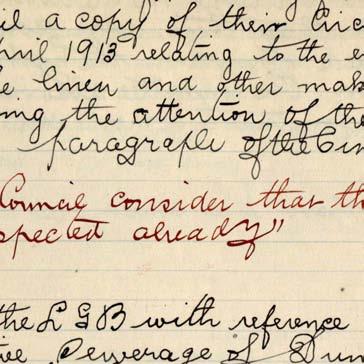 il a copy of their Circ
pril 1913 relating to the e
e linen and other mak
ing the attention of the
paragraph of the Cir
Council consider that th
spected already"
the L G B with reference
Sewerage of Dun